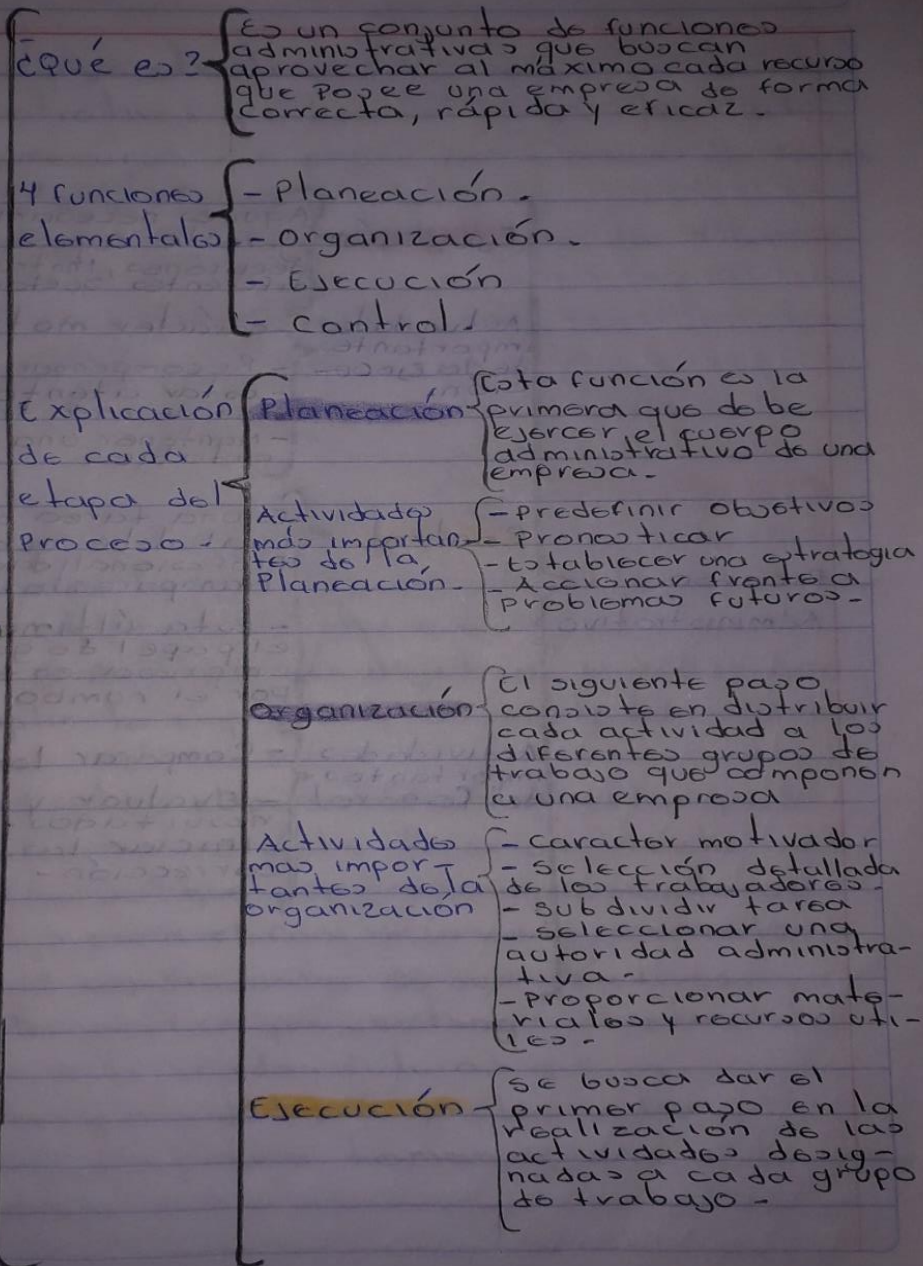 ¿Qué es?
Es un conjunto de funciones
administrativas que buscan
aprovechar al máximo cada recurso
que posee una empresa de forma
correcta, rápida y eficaz.
4 funciones
elementales
- Planeación.
- Organización.
- Ejecución
- Control.
Explicación
de cada
etapa del
proceso.
Planeación
Esta función es la
primera que debe
ejercer el cuerpo
administrativo de una
empresa.
Actividades
más importan-
tes de la
Planeación.
- Predefinir objetivos
- Pronosticar
- Establecer una estrategia
- Accionar frente a
problemas futuros.
Organización
El siguiente paso
consiste en distribuir
cada actividad a los
diferentes grupos de
trabajo que componen
a una empresa
Actividades
mas impor-
tantes de la
organización
- Caracter motivador
- Selección detallada
de los trabajadores.
- Subdividir tarea
- Seleccionar una
autoridad administra-
tiva.
- Proporcionar mate-
riales y recursos uti-
les.
Ejecución
Se busca dar el
primer paso en la
realización de las
actividades desig-
nadas a cada grupo
de trabajo.